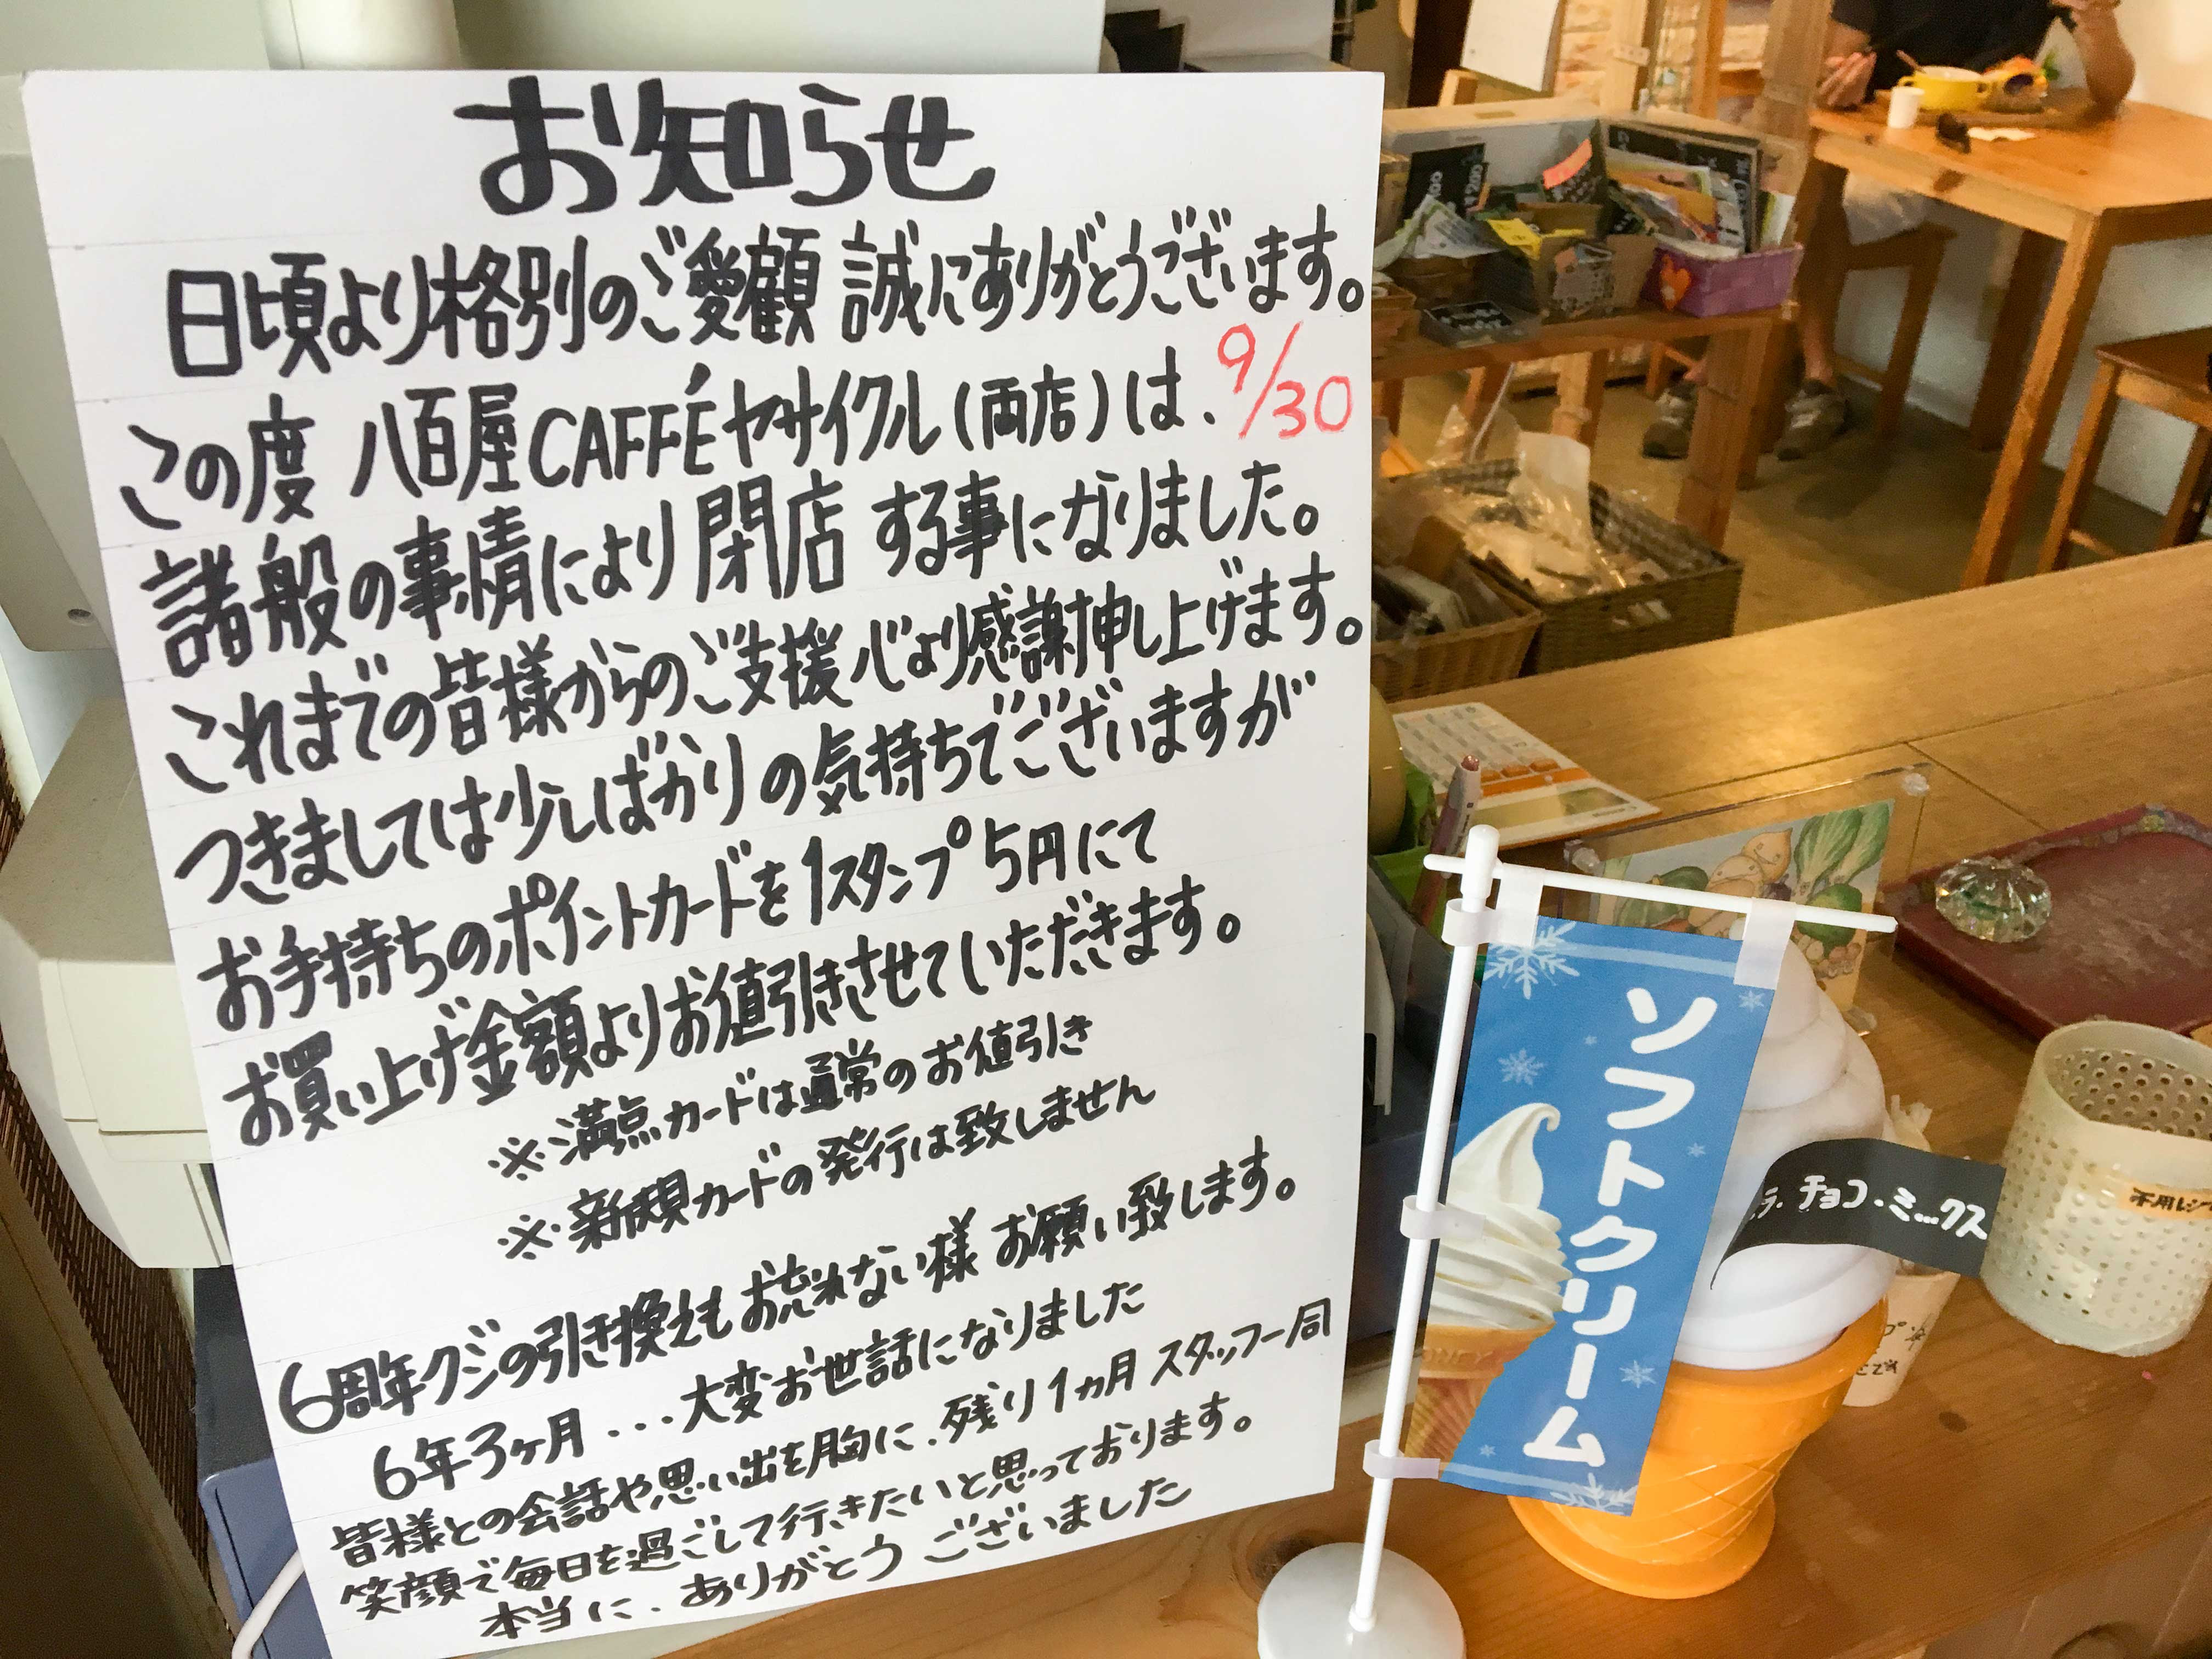 お知らせ
日頃より格別のご愛顧 誠にありがとうございます。
この度 八百屋CAFFÉヤサイクル(両店)は、9/30
諸般の事情により閉店 する事になりました。
これまでの皆様からのご支援 心より感謝申し上げます。
つきましては少しばかりの気持ちでございますが
お手持ちのポイントカードを1スタンプ5円にて
お買い上げ金額よりお値引きさせていただきます。
※満点カードは通常のお値引き
※新規カードの発行は致しません
6周年クジの引き換えもお忘れない様 お願い致します。
6年3ヶ月...大変お世話になりました
皆様との会話や思い出を胸に、残り1ヵ月 スタッフ一同
笑顔で毎日を過ごして行きたいと思っております。
本当に、ありがとうございました
ソフトクリーム
ラ・チョコ・ミックス
不用レシ